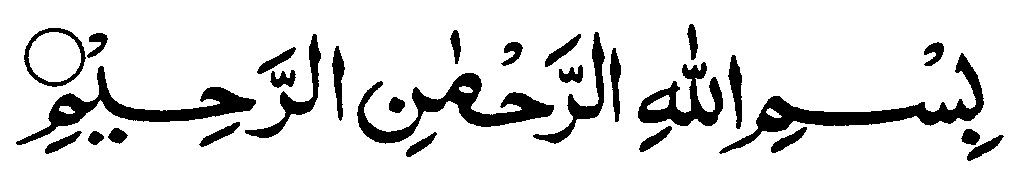 بِسْمِ اللّٰهِ الرَّحْمٰنِ الرَّحِيْمِ ۝